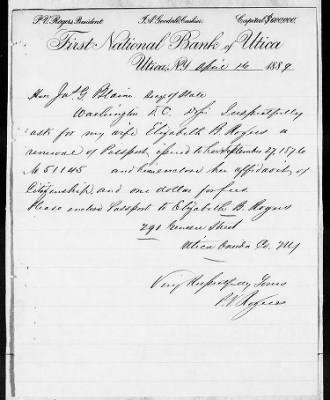 P. V. Rogers President T. A. Goodale Cashier Capital $600,000.
First National Bank of Utica
Utica, N.Y. April 16 1889
Hon Jas G. Blain Secy of State
Washington D.C. D/Sir I respectfully
ask for my wife Elizabeth B. Rogers a
renewal of Passport, issued to her September 27, 1876
No 51145 and have enclosed her affidavit of
Citizenship, and one dollar for fees.
Please enclose Passport to Elizabeth B. Rogers
291 Genesee Street
Utica Oneida Co. N.Y
Very Respectfully Yours
P. V. Rogers